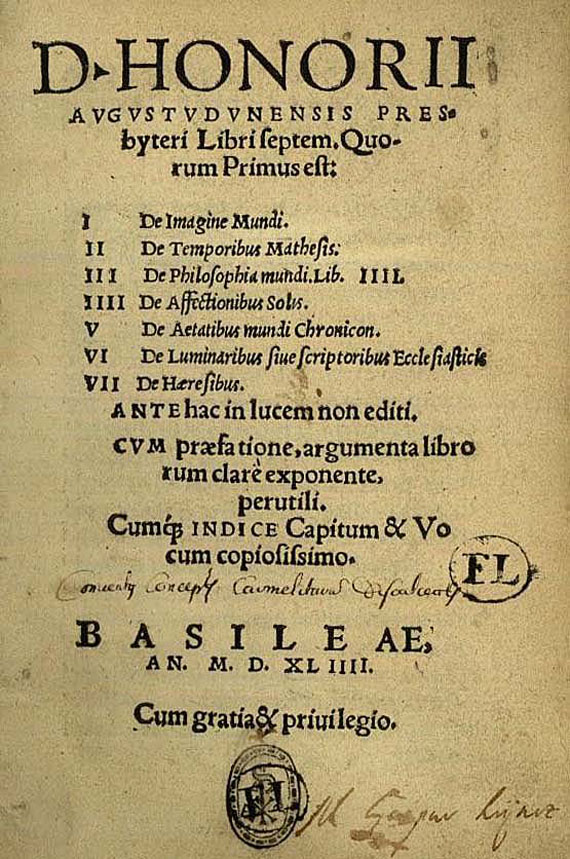 D. HONORII
AVGVSTVDVNENSIS PRES-
byteri Libri ſeptem, Quo-
rum Primus eſt:
I De Imagine Mundi.
II De Temporibus Matheſis:
III De Philoſophia mundi. Lib. IIII.
IIII De Affectionibus Solis.
V De Aetatibus mundi Chronicon.
VI De Luminaribus ſiue ſcriptoribus Eccleſiaſticis
VII De Hæreſibus.
ANTE hac in lucem non editi.
CVM præfatione, argumenta libro
rum clarè exponente,
perutili.
Cumq́; INDICE Capitum & Vo
cum copioſiſsimo.
FL
Carmelitarum
BASILEAE,
AN. M. D. XLIIII.
Cum gratia & priuilegio.
FL
Gaspar